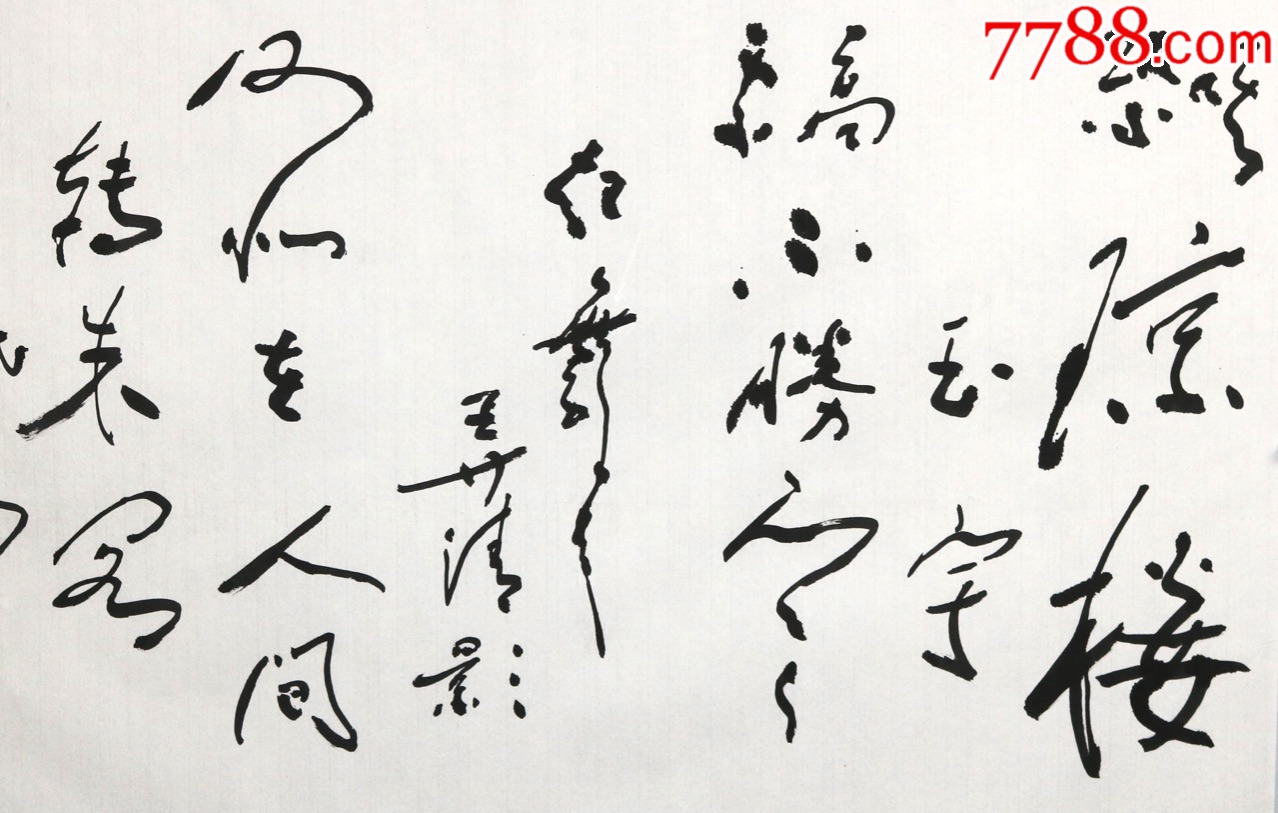 7788.com
琼楼
玉宇
高處不勝寒
起舞
弄清影
何似在人間
轉朱閣